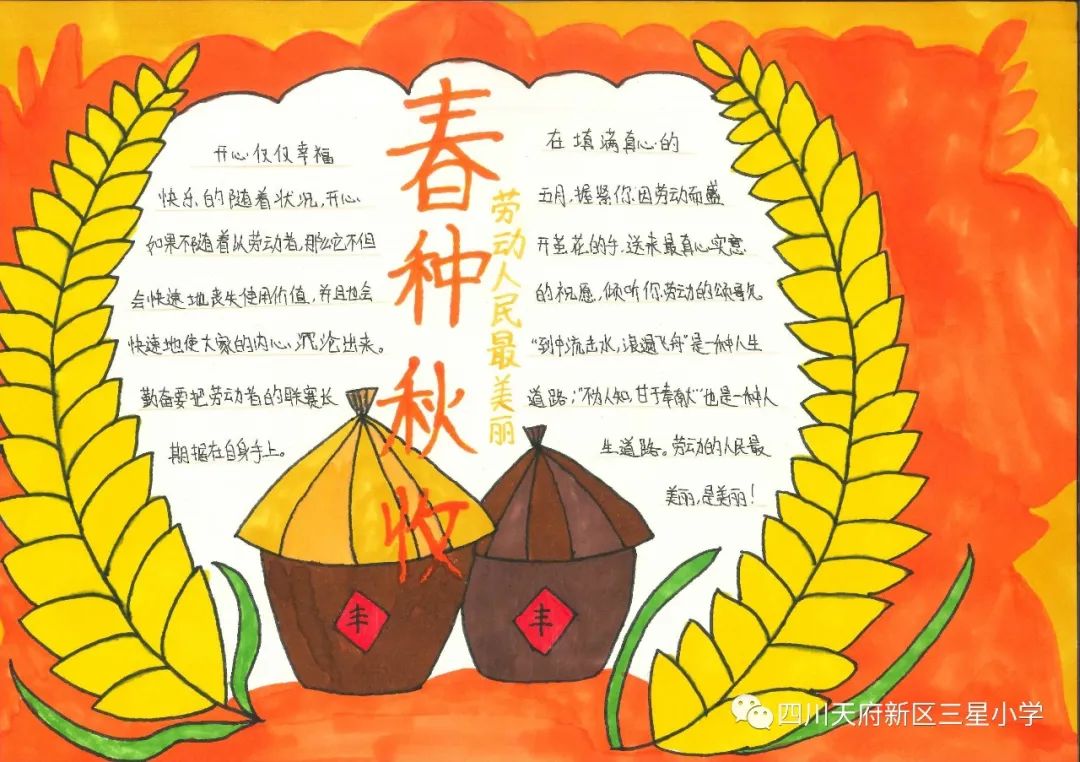 春种秋收
劳动人民最美丽
开心仅仅幸福
快乐的随着状况,开心
如果不随着从劳动者,那么它不但
会快速地丧失使用价值,并且也会
快速地使大家的内心沉沦出来。
勤奋要把劳动者的联赛长
期握在自身手上。
在填满真心的
五月,握紧你因劳动而盛
开茧花的手,送来最真心实意
的祝愿,倾听你劳动的颂歌
"到中流击水,浪遏飞舟"是一种人生
道路;"不为人知,甘于奉献"也是一种人
生道路。劳动的人民最
美丽,是美丽!
丰
丰
四川天府新区三星小学